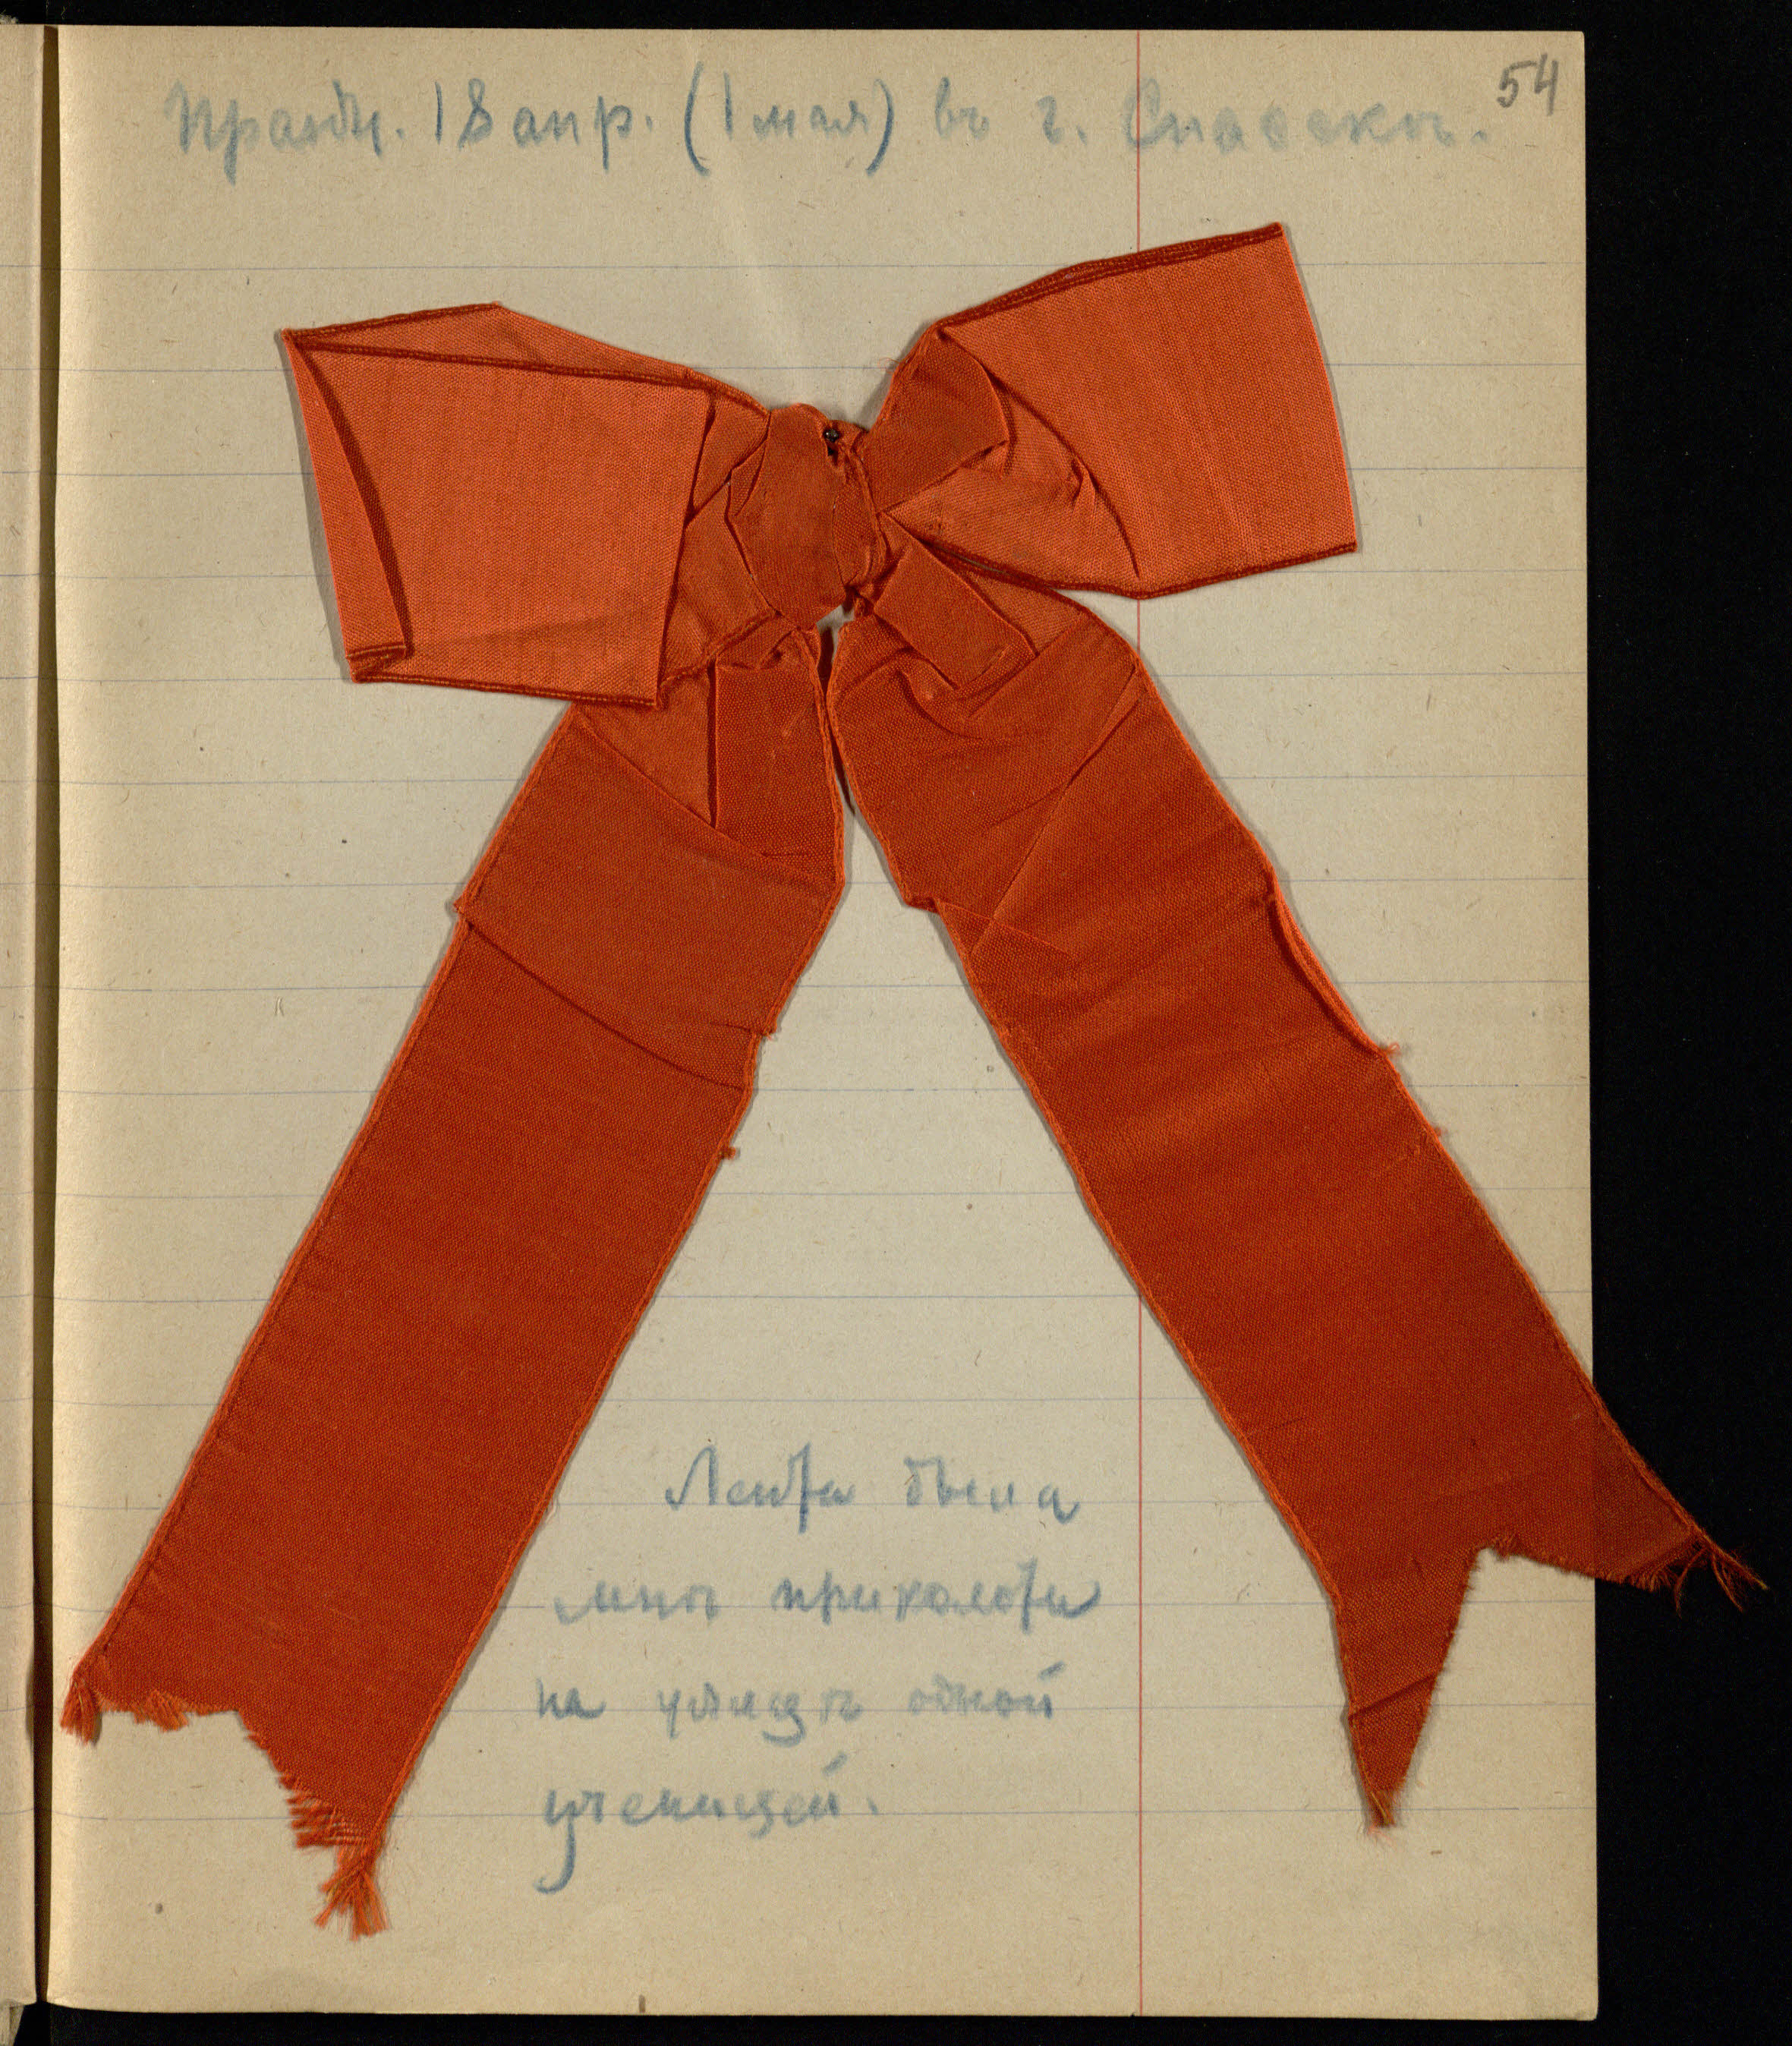 54
Праздн. 18 апр. (1 мая) въ г. Спасскѣ.
Лента была
мнѣ приколота
на улицѣ одной
ученицей.